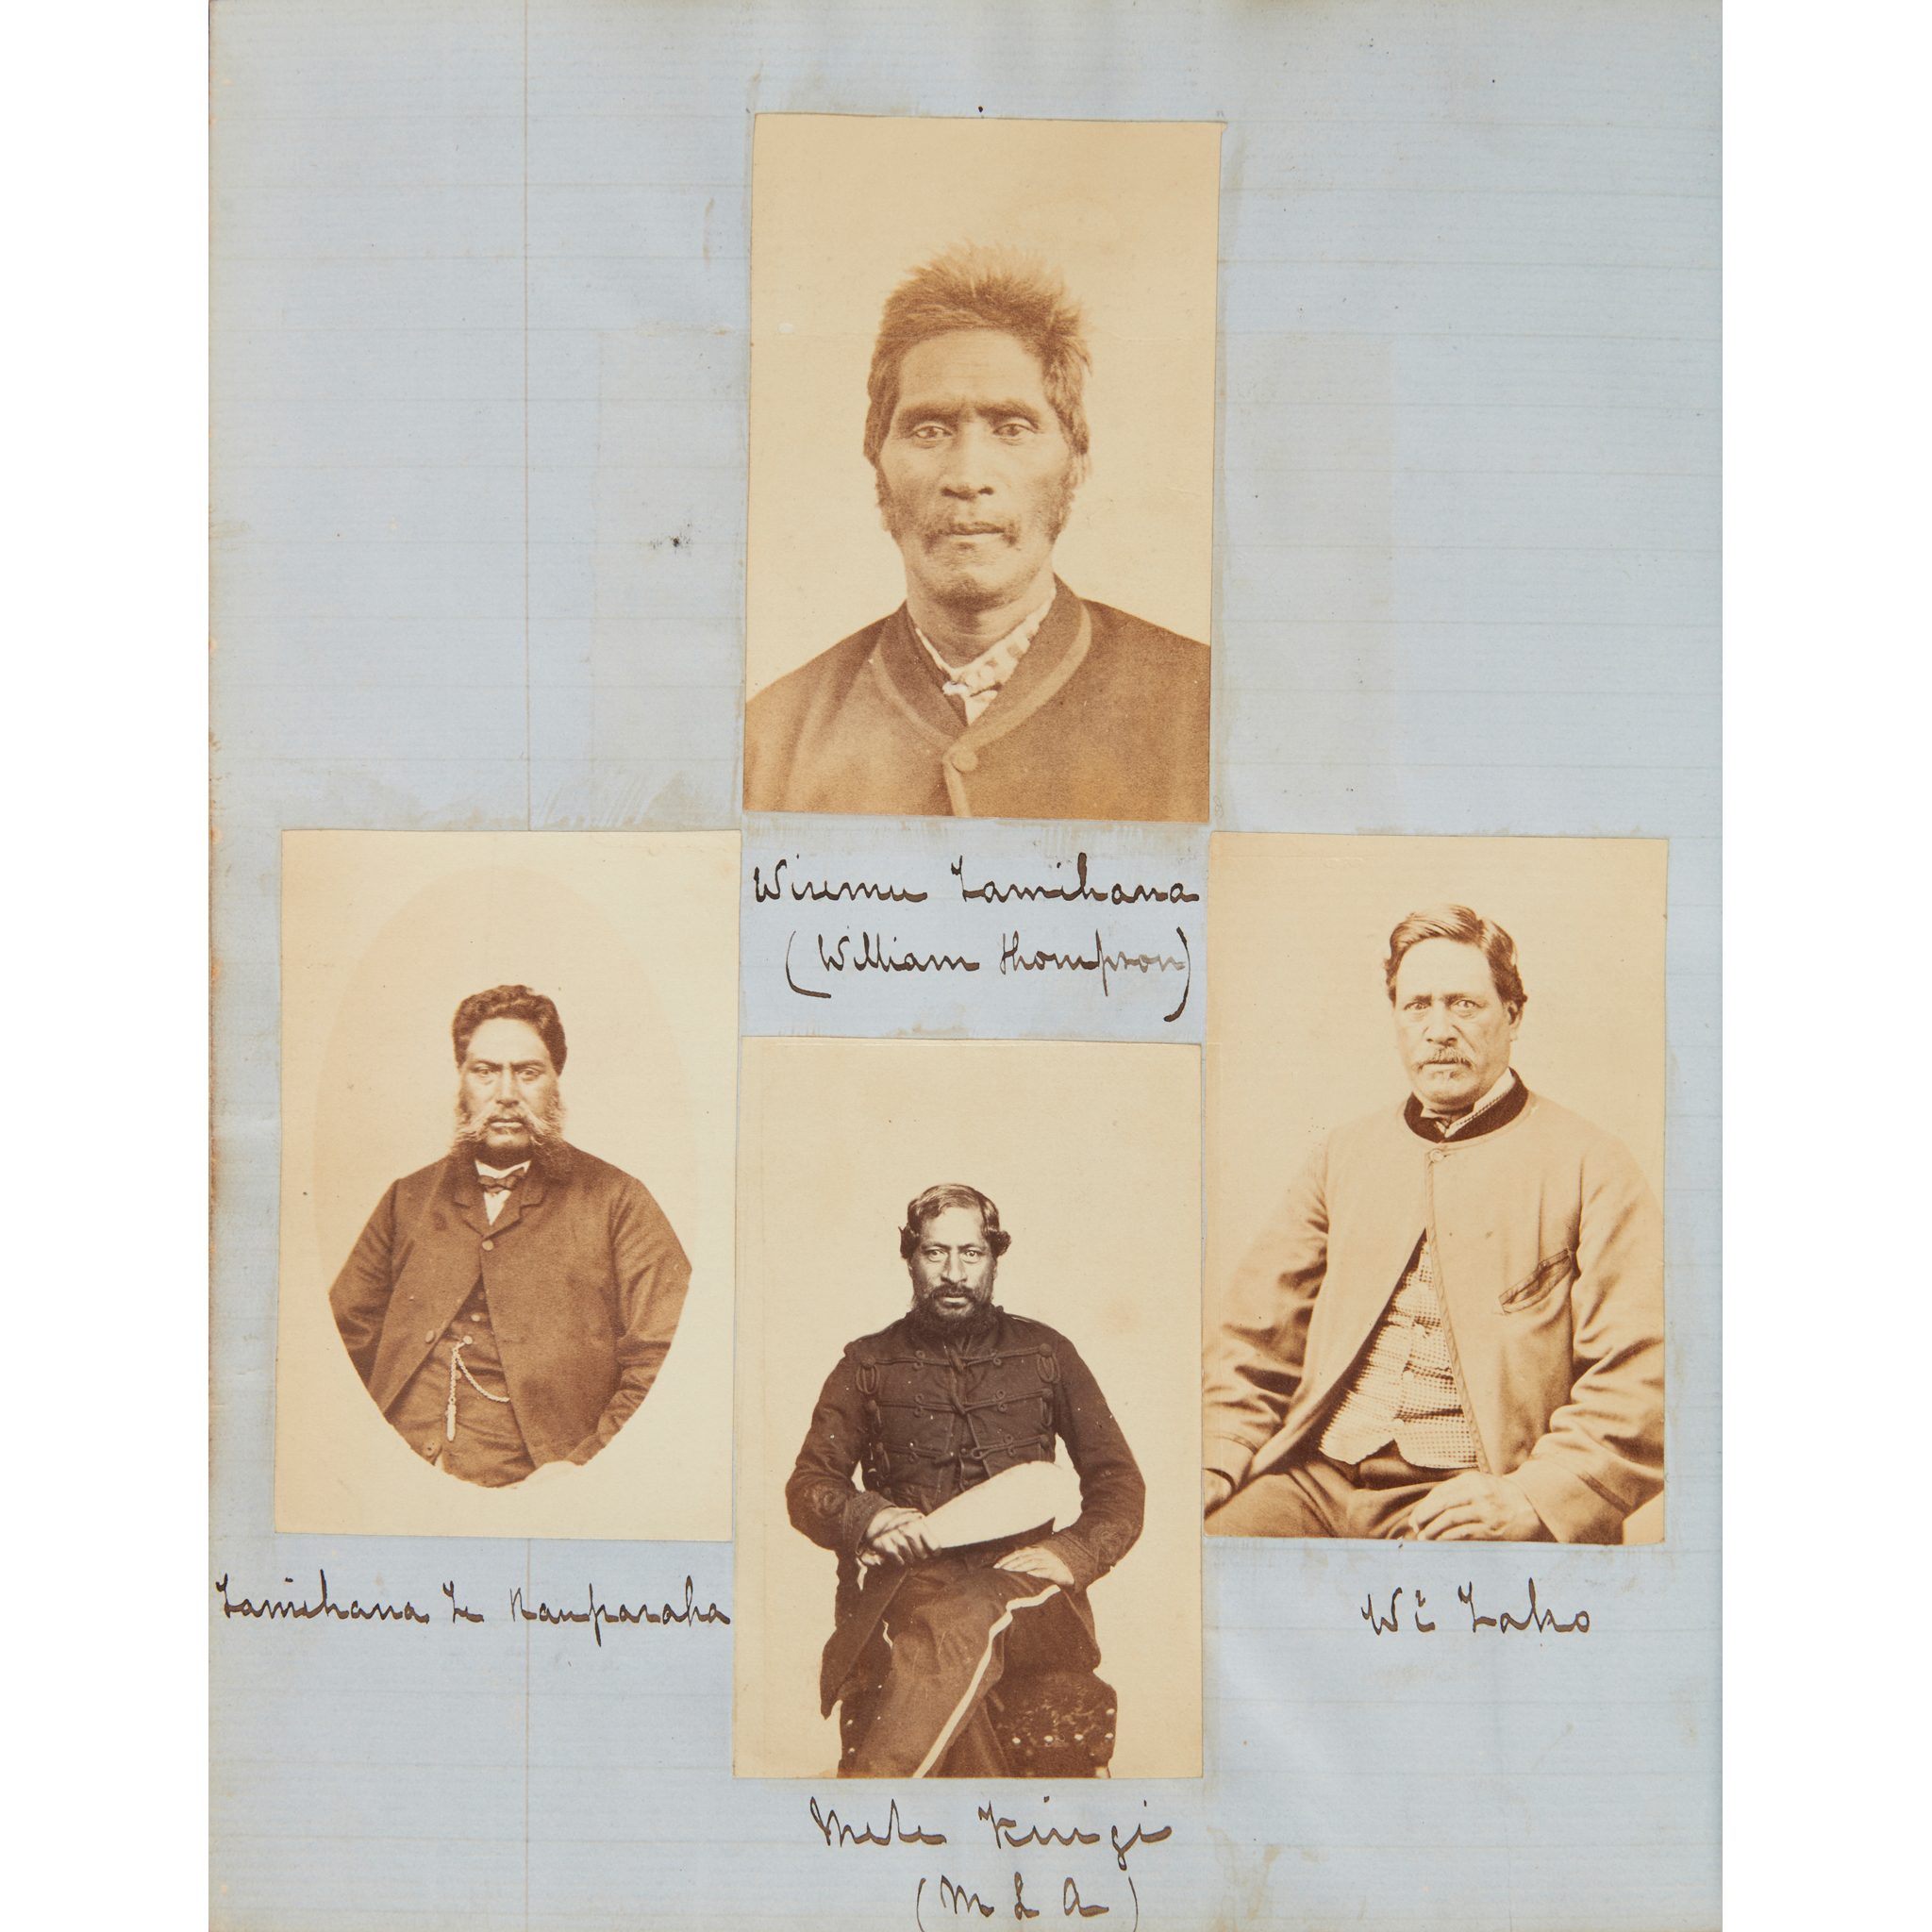 Wiremu Tamihana
(William Thompson)
Tamihana Te Rauparaha
Wi Tako
Mete Kingi
(M L A)